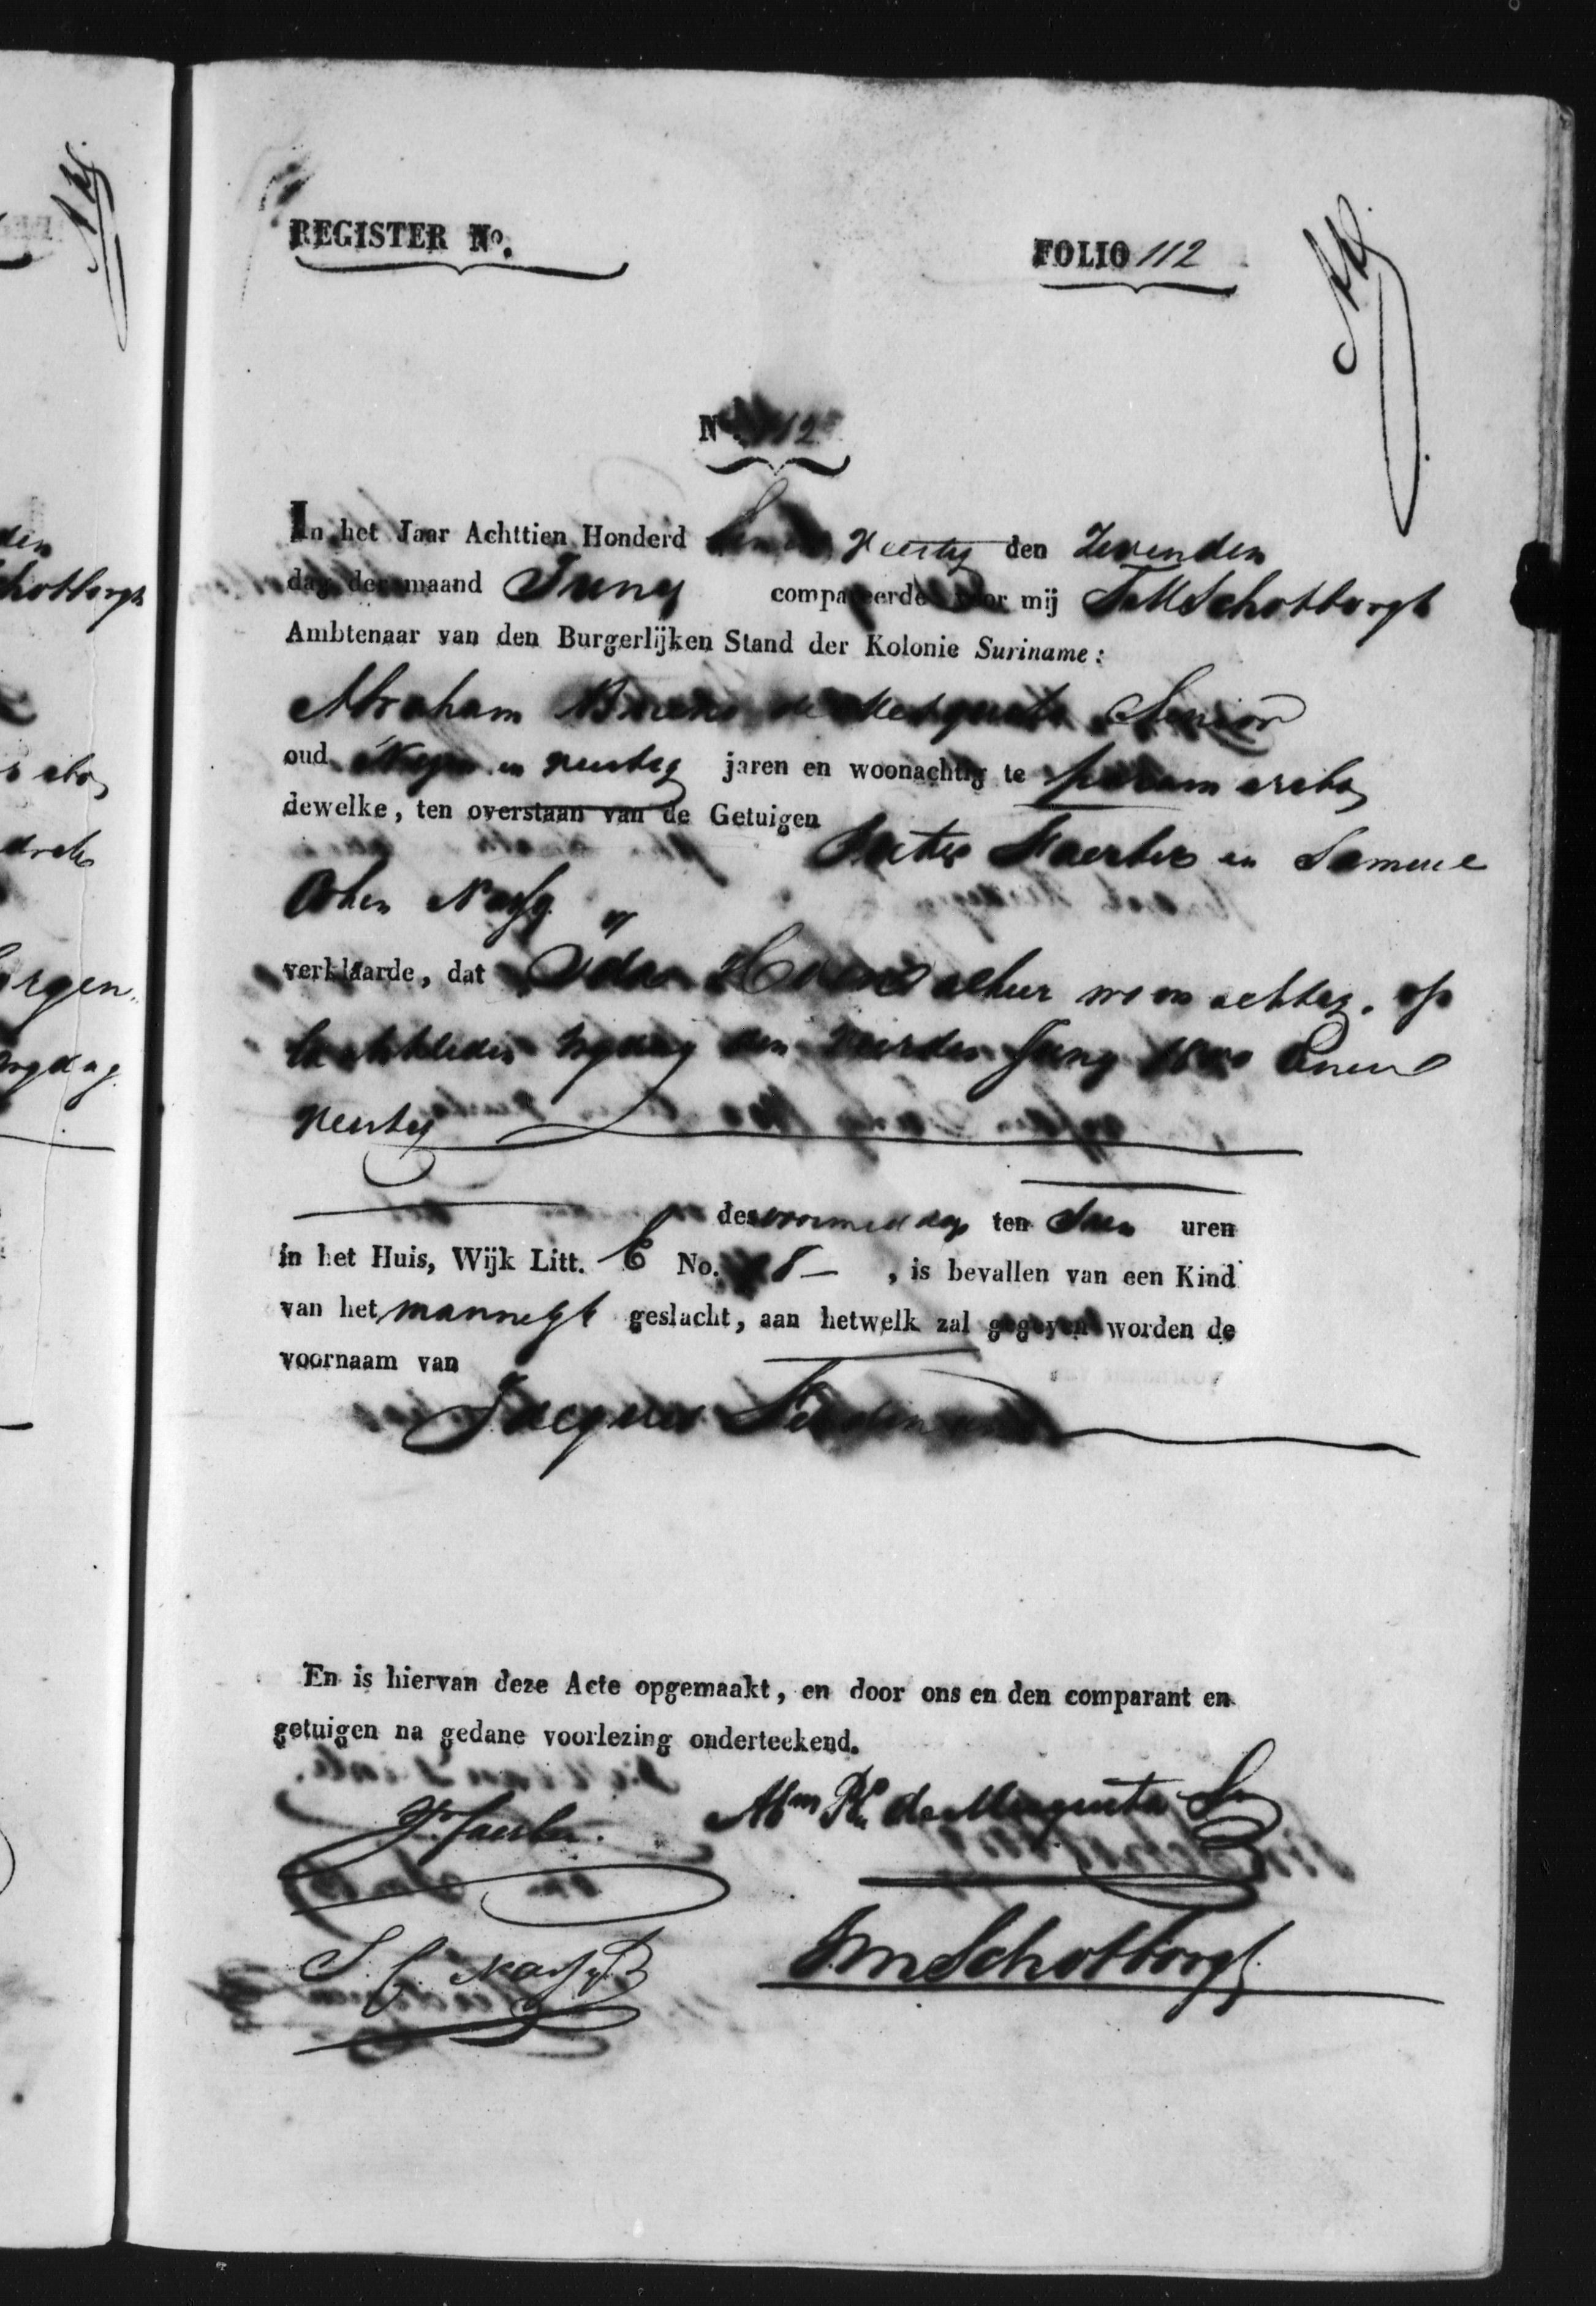 REGISTER No.
FOLIO 112
No. 112
In het Jaar Achttien Honderd Een en Veertig den Zevenden
dag der maand Juny compareerde voor mij Schotborgh
Ambtenaar van den Burgerlijken Stand der Kolonie Suriname:
Abraham Bueno de Mesquita Senior
oud Negen en veertig jaren en woonachtig te paramaribo
dewelke, ten overstaan van de Getuigen
Pieter Faerber en Samuel
Cohen Nassy
verklaarde, dat alhier woonachtig, op
den vierden Juny 1800 Een en
veertig
des voormiddags ten uren
in het Huis, Wijk Litt. E No. 8 , is bevallen van een Kind
van het mannelyk geslacht, aan hetwelk zal gegeven worden de
voornaam van
Jacques Ferdinand
En is hiervan deze Acte opgemaakt, en door ons en den comparant en
getuigen na gedane voorlezing onderteekend.
P. Faerber.
Abm Bo. de Mesquita Sr
S. C. Nassy
Schotborgh